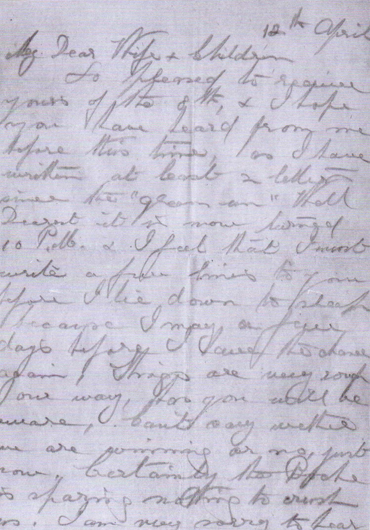 12th April
My Dear Wife & Children
So pleased to receive
yours of the 8th, & I hope
you have heard from me
before this time, as I have
written at least 2 letters
since the
it is now turned
10 P.M. & I feel that I must
write a few lines to you
before I lie down to sleep
because I may a few
days before I have the chance
again, Things are very rough
our way, you will be
aware, cant say wether
we are winning or no, just
now, Certainly the Boche
is sparing nothing to crush
us. I am very sorry to hear